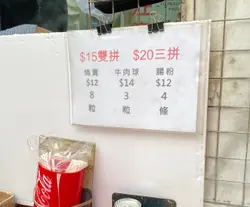 $15雙拼 $20三拼
燒賣 牛肉球 腸粉
$12 $14 $12
8 3 4
粒 粒 條